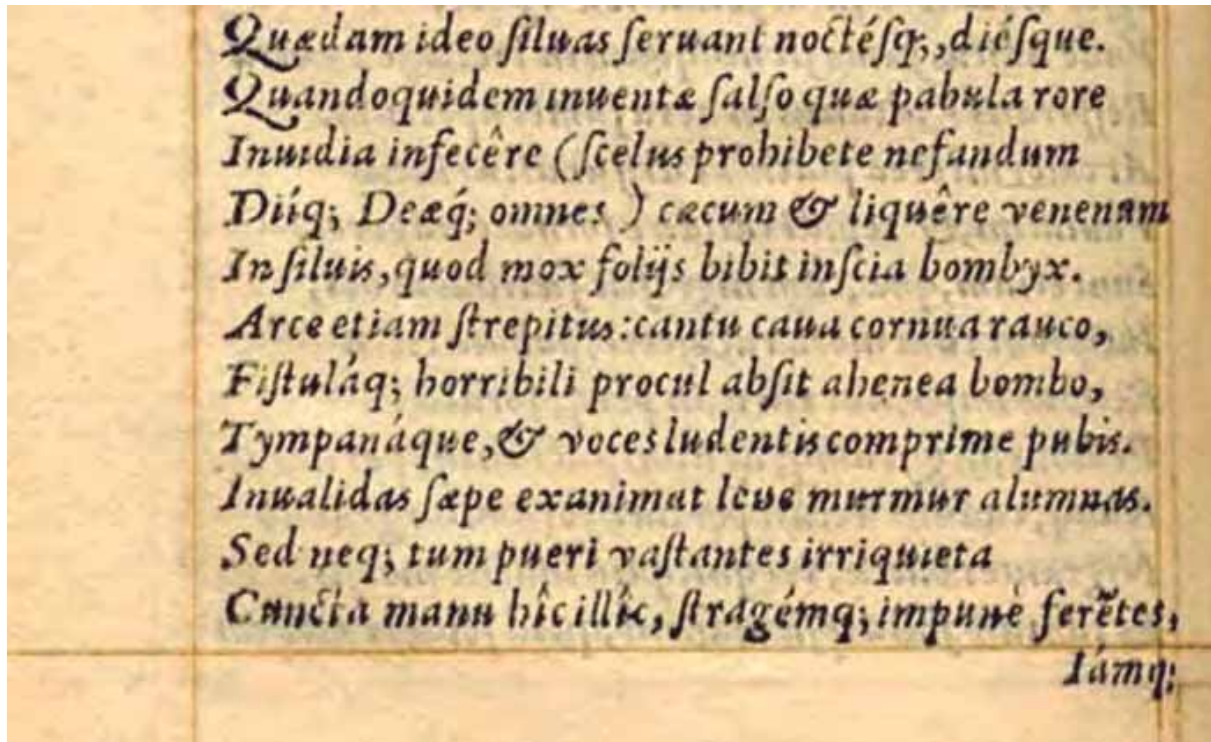 Quædam ideo ſiluas ſeruant noctéſq;, diéſque.
Quandoquidem inuentæ ſalſo quæ pabula rore
Inuidia infecêre (ſcelus prohibete nefandum
Diíq; Deæq́; omnes ) cæcum & liquêre venenum
In ſiluis, quod mox folijs bibit inſcia bombyx.
Arce etiam ſtrepitus: cantu caua cornua rauco,
Fiſtuláq; horribili procul abſit ahenea bombo,
Tympanáque, & voces ludentis comprime pubis.
Inualidas ſæpe exanimat leue murmur alumnas.
Sed neq; tum pueri vaſtantes irriquieta
Cuncta manu hîc illîc, ſtragémq; impunè ferẽtes,
Iámq;